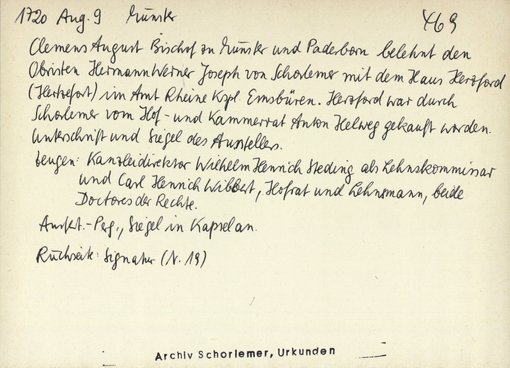 1720 Aug. 9 Münster 469
Clemens August Bischof zu Münster und Paderborn belehnt den
Obristen Hermann Werner Joseph von Schorlemer mit dem Haus Herzford
(Hertzefort) im Amt Rheine Kspl. Emsbüren. Herzford war durch
Schorlemer vom Hof- und Kammerrat Anton Helweg gekauft worden.
Unterschrift und Siegel des Ausstellers.
Zeugen: Kanzleidirektor Wilhelm Henrich Steding als Lehnskommissar
und Carl Henrich Wibbert, Hofrat und Lehnsmann, beide
Doctores der Rechte.
Ausf.-Perg., Siegel in Kapsel an.
Rückseite: Signatur (N. 19)
Archiv Schorlemer, Urkunden